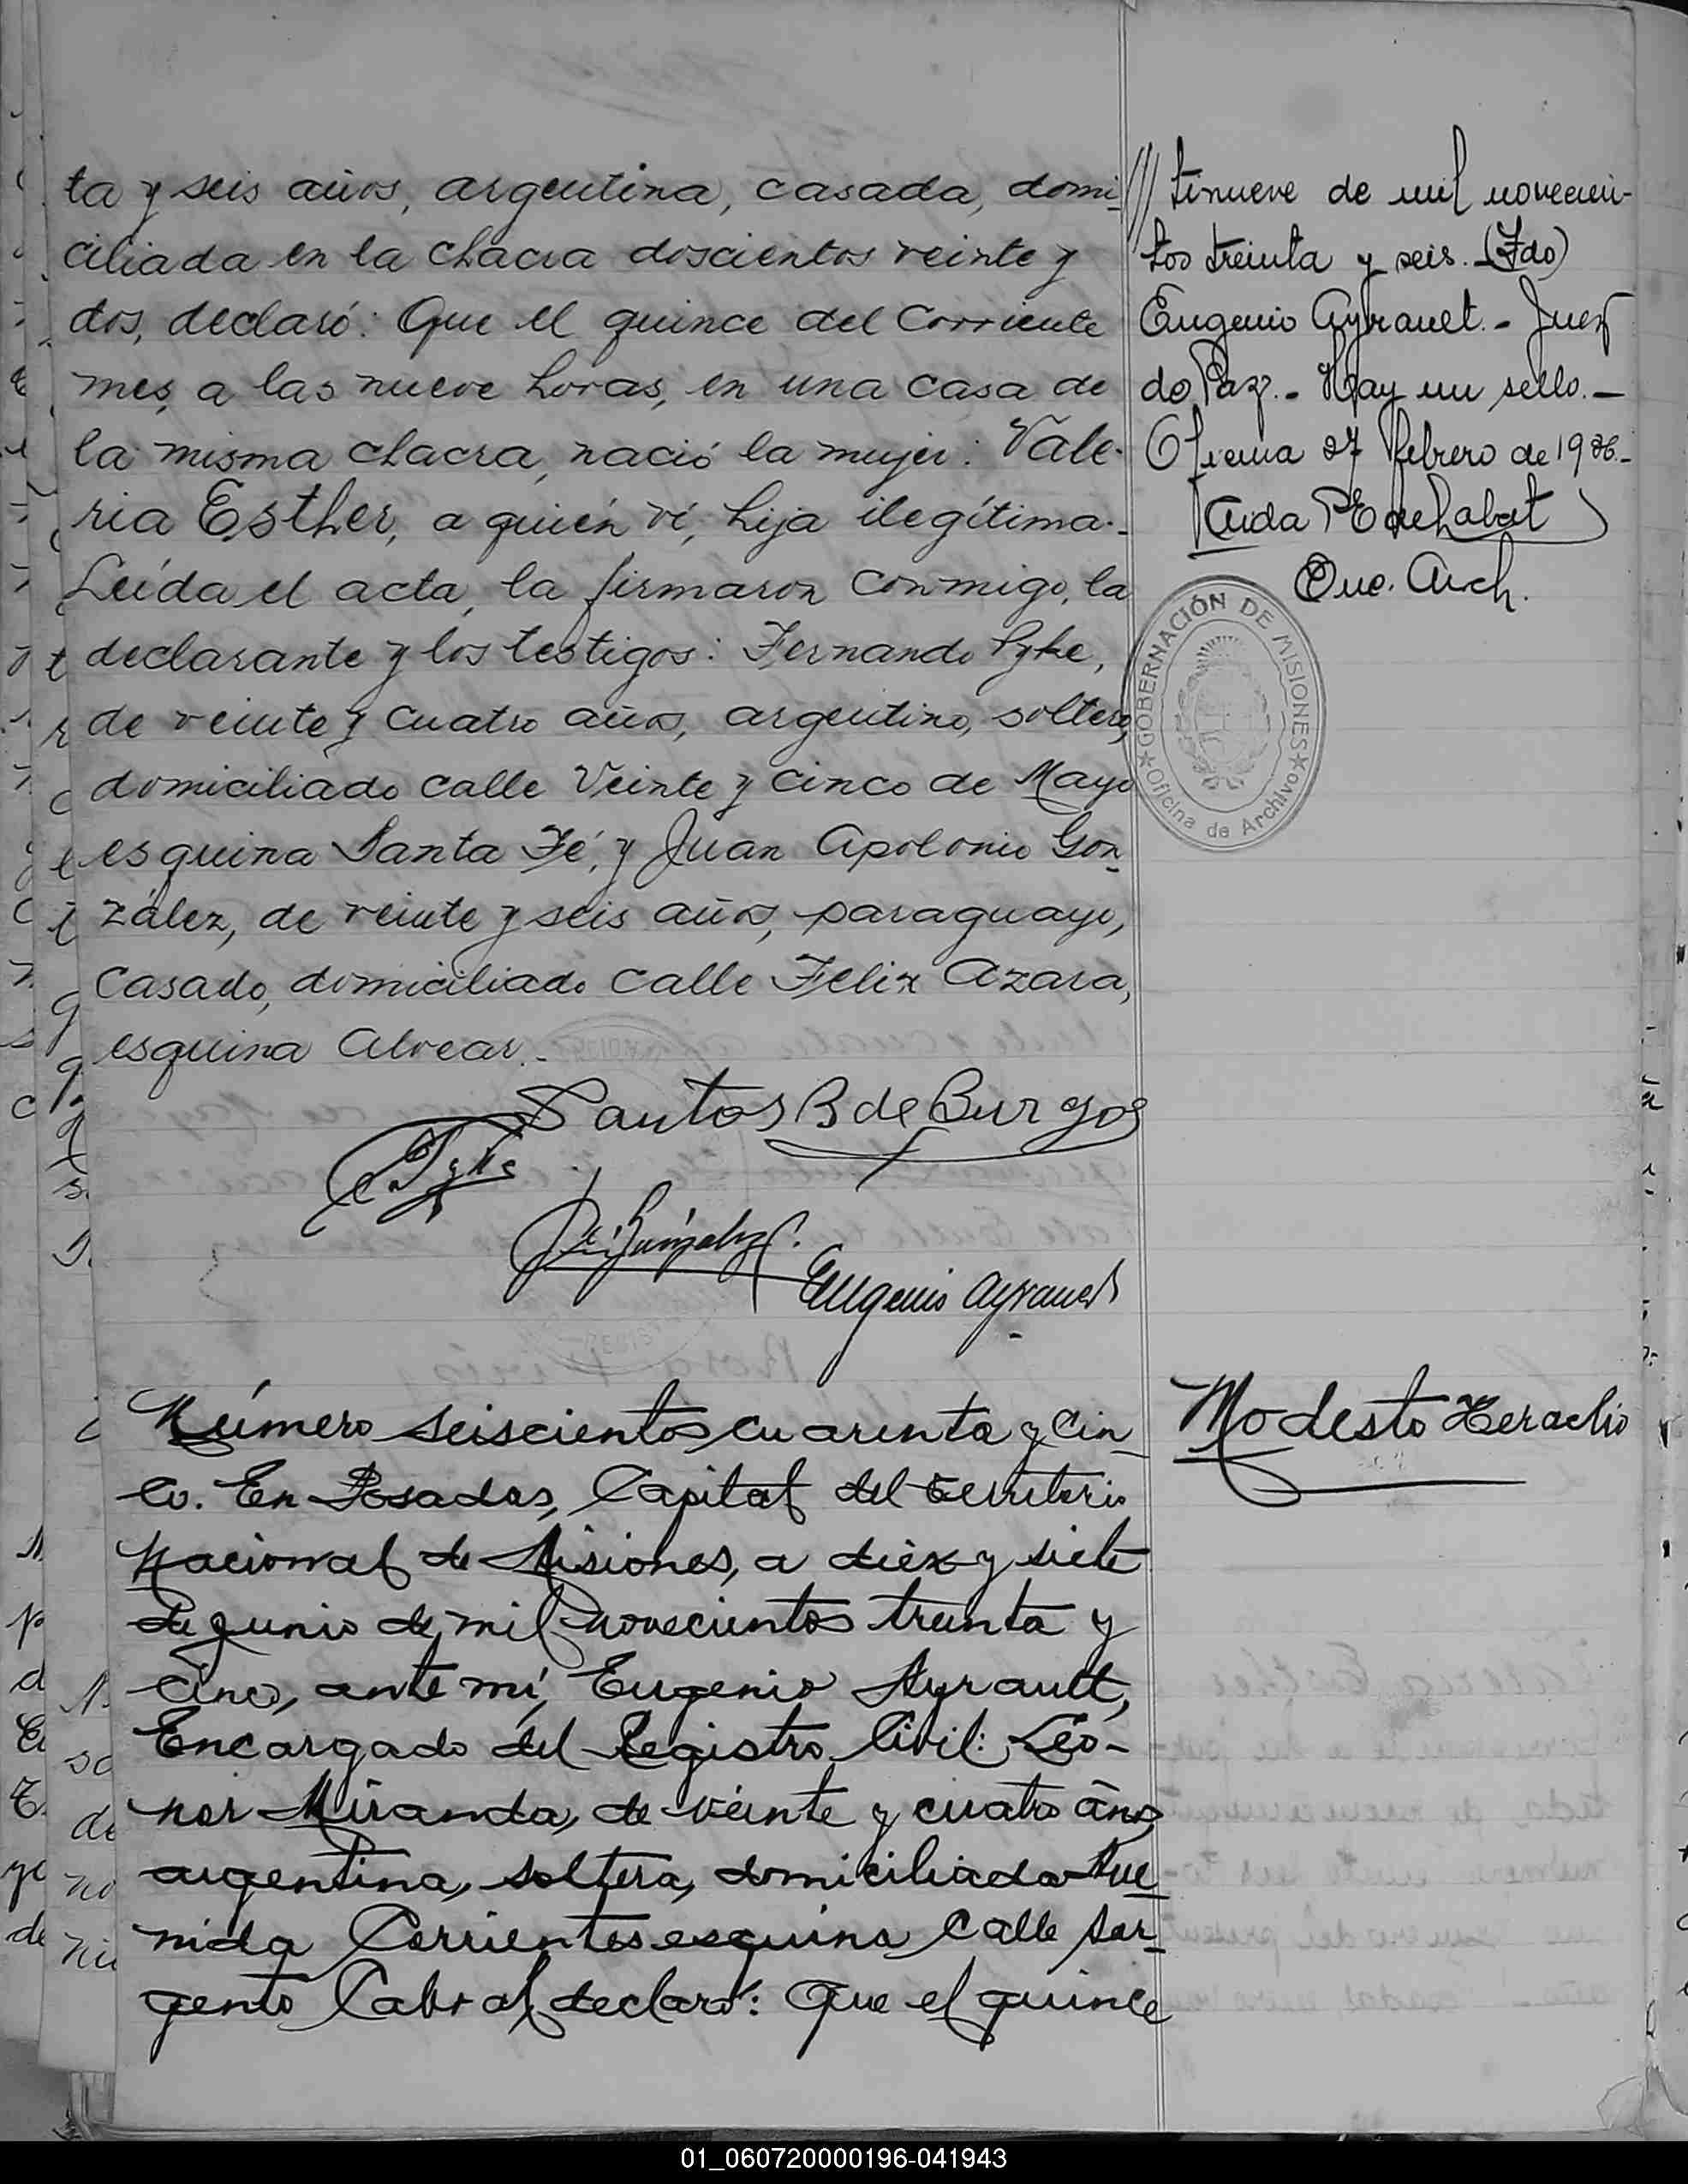 ta y seis años, argentina, casada, domi-
ciliada en la chacra doscientos veinte y
dos, declaró: Que el quince del corriente
mes, a las nueve horas, en una casa de
la misma chacra, nació la mujer: Vale-
ria Esther, a quién ví, hija ilegítima.-
Leída el acta, la firmaron conmigo, la
declarante y los testigos: Fernando Pyke,
de veinte y cuatro años, argentino, soltero,
domiciliado calle Veinte y cinco de Mayo
esquina Santa Fé, y Juan Apolonio Gon-
zález, de veinte y seis años, paraguayo,
casado, domiciliado calle Felix Azara,
esquina Alvear.-
Santos B de Burgos
González
Eugenio Ayrault
Número seiscientos cuarenta y cin-
co. En Posadas, Capital del territorio
Nacional de Misiones, a diez y siete
de junio de mil novecientos treinta y
cinco, ante mí, Eugenio Ayrault,
Encargado del Registro Civil: Leo-
nor Miranda, de veinte y cuatro años,
argentina, soltera, domiciliada Ave-
nida Corrientes esquina calle Sar-
gento Cabral, declaró: Que el quince
/// tinueve de mil novecien-
tos treinta y seis.- (Fdo)
Eugenio Ayrault.- Juez
de Paz.- Hay un sello.-
Oficina 27 Febrero de 1936.-
Aida
Enc. Arch.
GOBERNACIÓN DE MISIONES
Oficina de Archivo
Modesto Heraclio
01_060720000196-041943